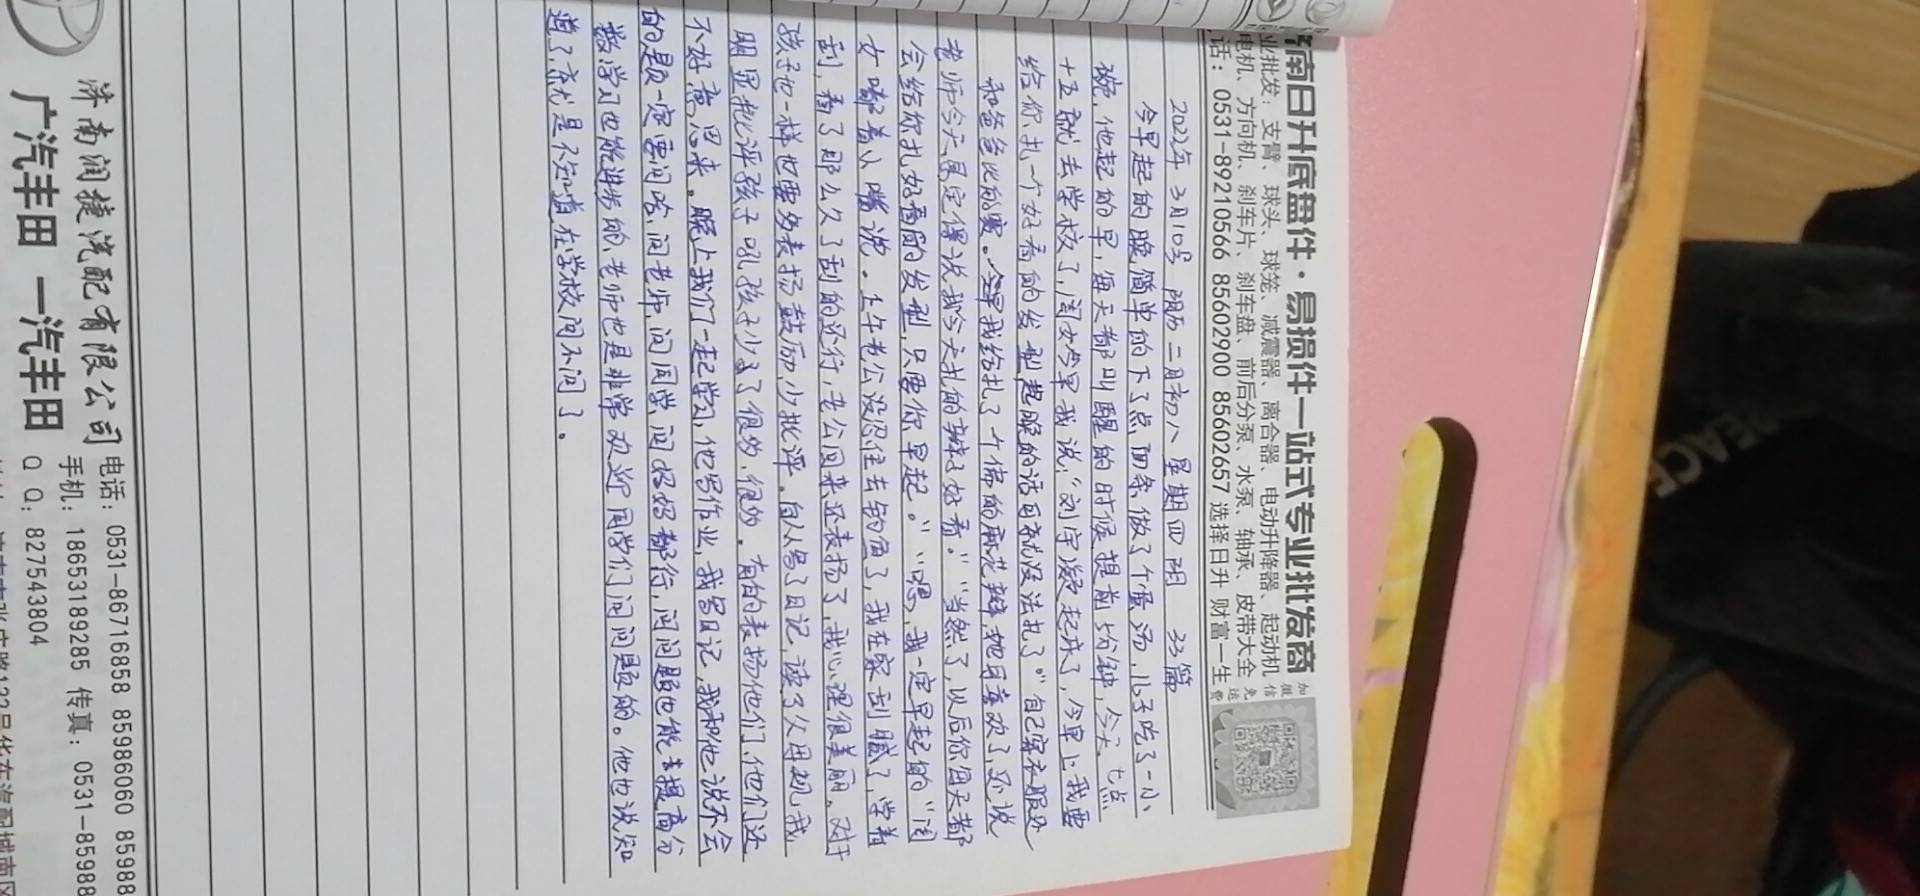 南日升底盘件·易损件一站式专业批发商
业批发：支臂、球头、球笼、减震器、离合器、电动升降器、起动机
电机、方向机、刹车片、刹车盘、前后分泵、水泵、轴承、皮带大全
话：0531-89210566 85602900 85602657 选择日升 财富一生
加微信免运费
2022年 3月10号 阴历二月初八 星期四 阴 33篇
今早起的晚简单的下了点面条做了个蛋汤，儿子吃了一小
碗，他起的早，每天都叫醒的时候提前5分钟，今天七点
十五就去学校了，闺女今早我说：“刘宇凝起床了，今早上我要
给你扎一个好看的发型起晚的话可就没法扎了”自己穿衣服处
和爸爸比的赛。今早我给扎了个偏的麻花辫，她可喜欢了，还说
老师今天肯定得说我今天扎的辫子好看。”“当然了，以后你每天都
会给你扎好看的发型，只要你早起。”“嗯，我一定早起的”闺
女嘟着小嘴说。上午老公没忍住去钓鱼了，我在家刮腻子，学着
刮，看了那么久了刮的还行，老公回来还表扬了，我心理很美丽。对于
孩子也一样也要多表扬鼓励，少批评。自从写了日记，读了父母规，我
明显批评孩子吼孩子少了很多，很多。有的表扬他们，他们还
不好意思来。晚上我们一起学习，他写作业，我写日记，我和他说不会
的题一定要问哈，问老师，问同学，问妈妈都行，问问题也能去提高分
数，学习也能进步的，老师也是非常欢迎同学们问问题的。他也说知
道了，就是不知道在学校问不问了。
济南润捷汽配有限公司
广汽丰田 一汽丰田
电话：0531-86716858 85986060 85988
手机：18653189285 传真：0531-85988
Q Q：827543804